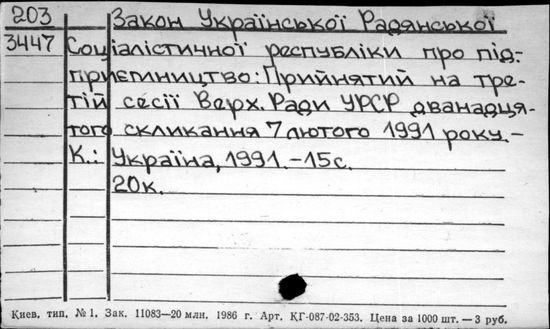 203 Закон Української Радянської
3447 Соціалістичної республіки про під-
приємництво: Прийнятий на тре-
тій сесії Верх. Ради УРСР дванадця-
того скликання 7 лютого 1991 року.–
К.: Україна, 1991.–15с.
20к.
Киев. тип. №1. Зак. 11083—20 млн. 1986 г. Арт. КГ-087-02-353. Цена за 1000 шт. — 3 руб.